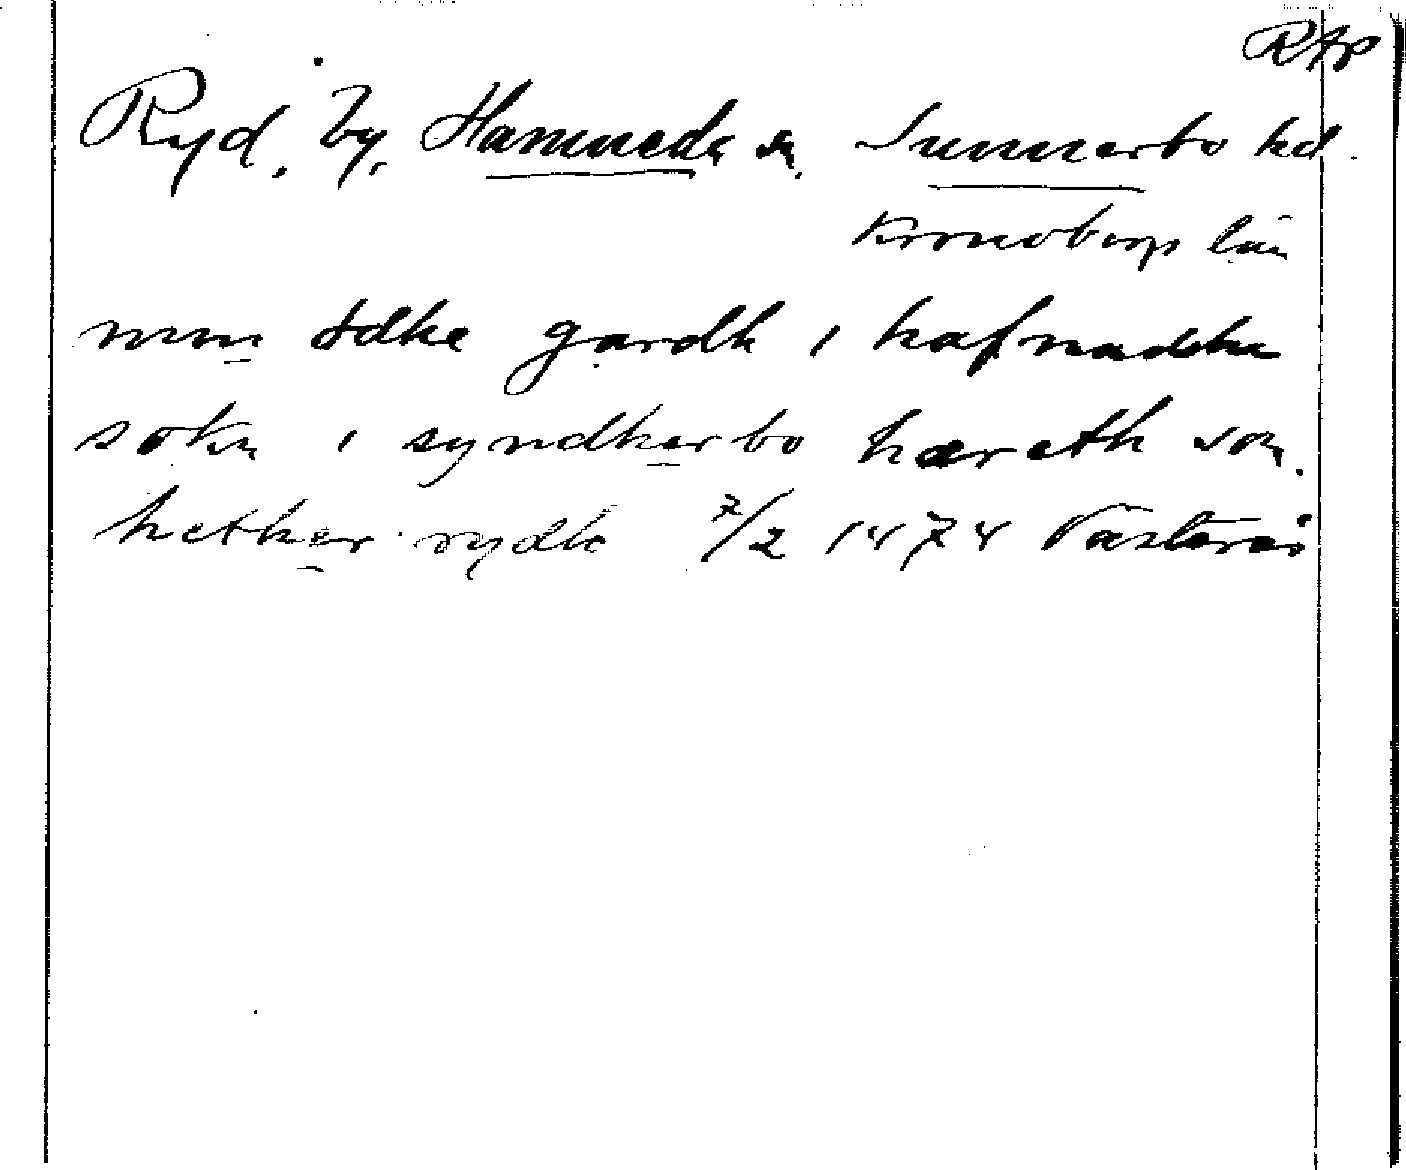 RAp
Ryd, by, Hamneda sn. Sunnerbo hd.
Kronobergs län
min gardh i hafnadha
sokn i syndherbo hæreth som
hether rydh 7/2 1474 Västerås